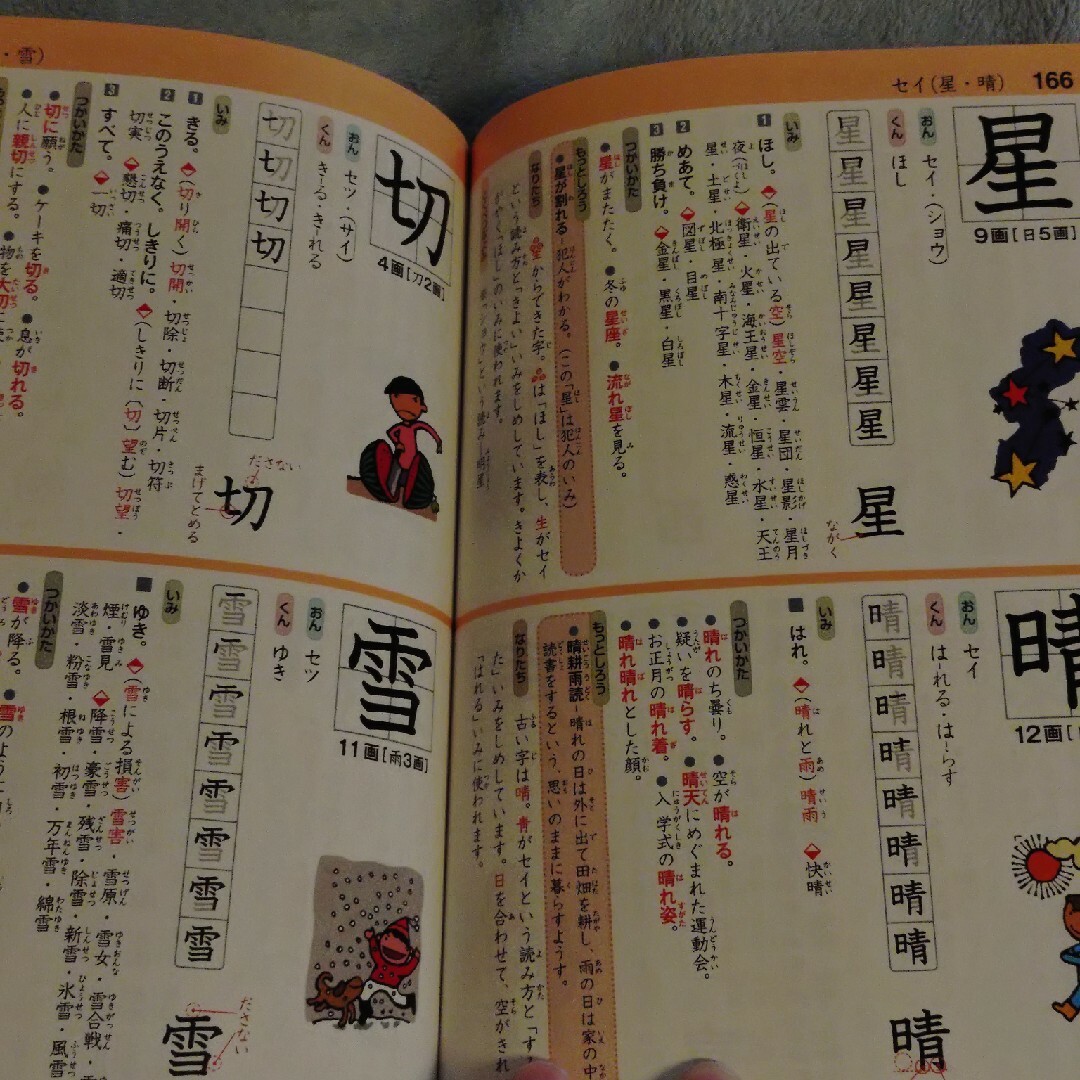 セイ(星・晴) 166
星
9画[日5画]
おん セイ・(ショウ)
くん ほし
星星星星星星星星
星
ながく
いみ
1 ほし。(星の出ている空)星空・星雲・星団・星影・星月
夜(衛星・火星・海王星・金星・恒星・水星・天王
星・土星・北極星・南十字星・木星・流星・惑星
2 めあて。図星・目星
3 勝ち負け。金星・黒星・白星
つかいかた
●星がまたたく。●冬の星座。●流れ星を見る。
もっとしろう
●星が割れる-犯人がわかる。(この「星」は犯人のいみ)
なりたち
からできた字。は「ほし」を表し、生がセイ
という読み方と「きよい」いみをしめしています。きよくか
がやく「ほし」のいみに使われます。
晴
12画
おん セイ
くん はれる・はらす
晴晴晴晴晴晴晴
晴
いみ
■はれ。(晴れと雨)晴雨 快晴
つかいかた
●晴れのち曇り。●空が晴れる。
●疑いを晴らす。●晴天にめぐまれた運動会。
●お正月の晴れ着。●入学式の晴れ姿。
●晴れ晴れとした顔。
もっとしろう
●晴耕雨読-晴れの日は外に出て田畑を耕し、雨の日は家の中
読書をするという、思いのままに暮らすようす。
なりたち
古い字は晴。青がセイという読み方と「す
た」いみをしめしています。日を合わせて、空がきれ
「はれる」いみに使われます。
・雪)
切
4画[刀2画]
おん セツ・(サイ)
くん きる・きれる
切切切切
切
ださない
まげてとめる
いみ
1 きる。(切り開く)切開・切除・切断・切片・切符
2 このうえなく。しきりに。(しきりに(切)望む)切望・
切実 懇切・痛切・適切
3 すべて。一切
つかいかた
●切に願う。●ケーキを切る。●息が切れる。
●人に親切にする。●物を大切に
雪
11画[雨3画]
おん セツ
くん ゆき
雪雪雪雪雪雪雪
雪
ださない
いみ
■ゆき。(雪による損害)雪害・雪原・雪女・雪合戦・
煙・雪見 降雪・豪雪・残雪・除雪・新雪・氷雪・風雪
淡雪・粉雪・根雪・初雪・万年雪・綿雪
つかいかた
●雪が降る。●雪のように